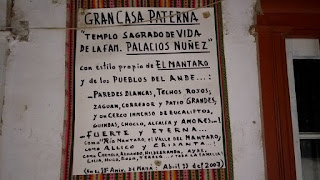 GRAN CASA PATERNA
"TEMPLO SAGRADO DE VIDA
DE LA FAM. PALACIOS NUÑEZ"
con estilo propio de EL MANTARO
y de los PUEBLOS DEL ANDE...:
-PAREDES BLANCAS, TECHOS ROJOS,
ZAGUAN, CORREDOR Y PATIO GRANDES,
y UN CERCO INMENSO DE EUCALIPTOS,
GUINDAS, CHOCLO, ALFALFA y AMORES...!
-FUERTE Y ETERNA...
COMO "RIO MANTARO, el VALLE DEL MANTARO,
COMO ALLICO y CRISANTA...!